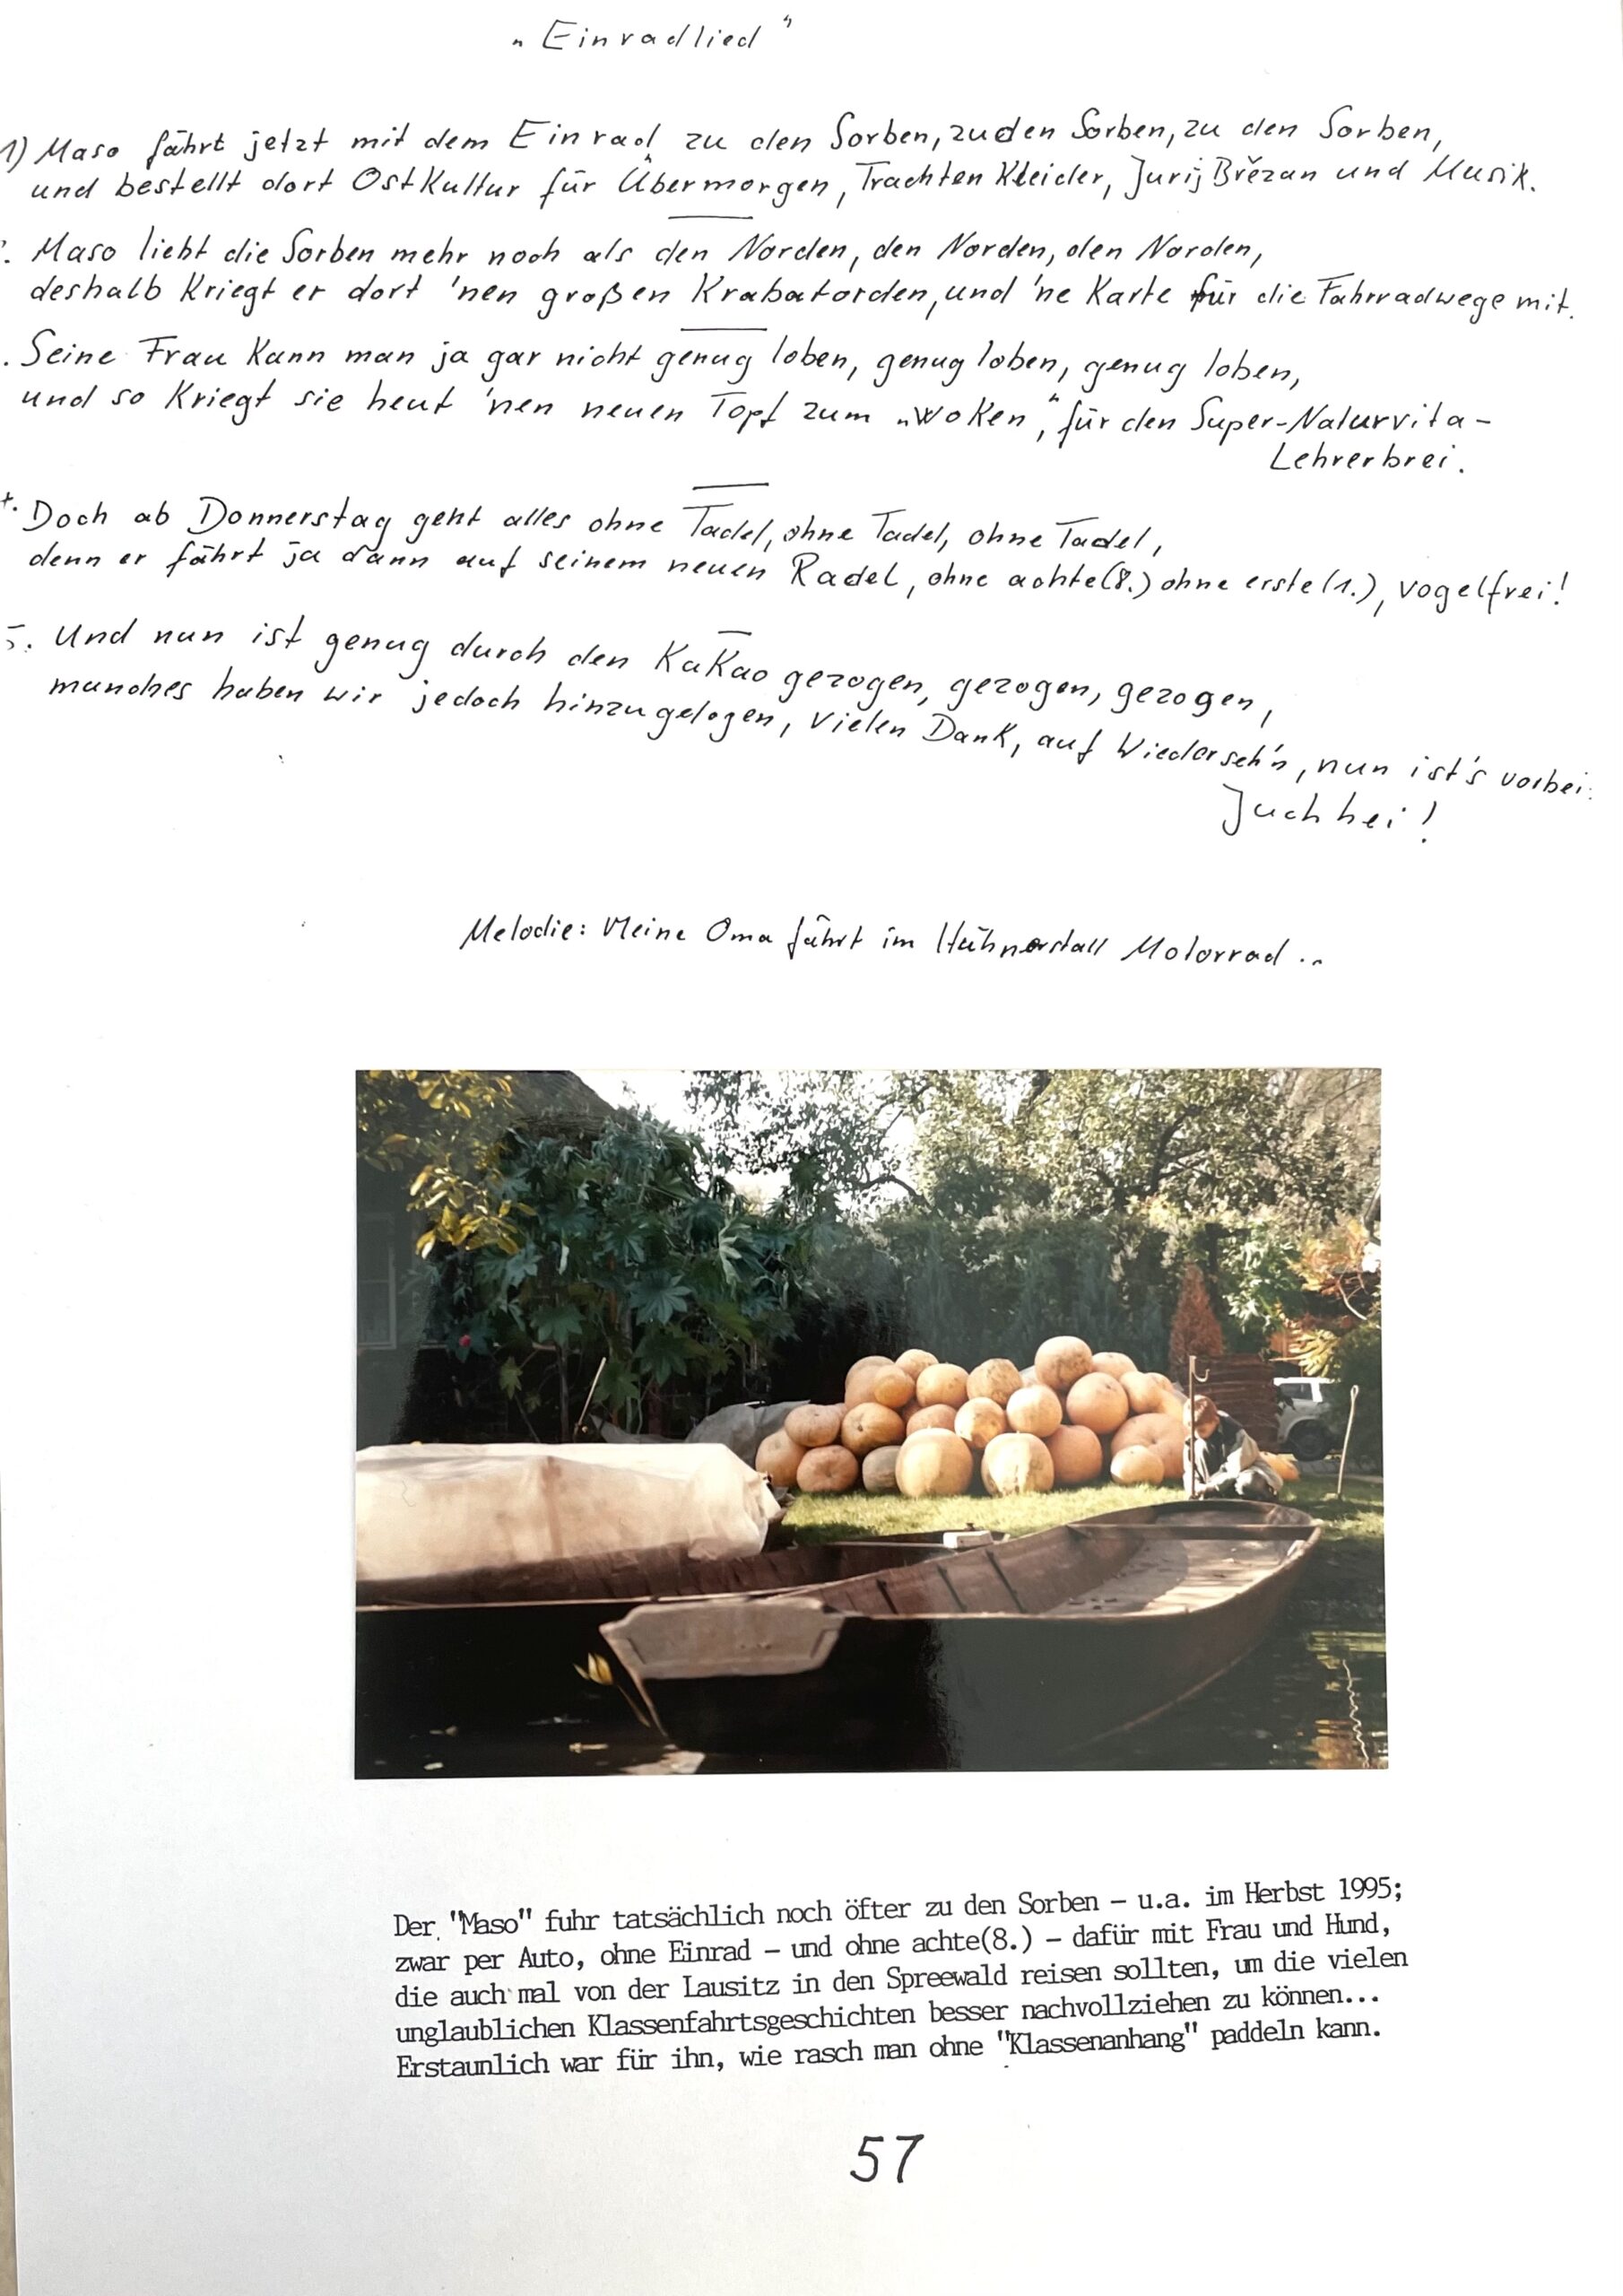 „Einradlied"
1) Maso fährt jetzt mit dem Einrad zu den Sorben, zu den Sorben, zu den Sorben,
und bestellt dort Ostkultur für Übermorgen, Trachten Kleider, Jurij Brězan und Musik.
. Maso liebt die Sorben mehr noch als den Norden, den Norden, den Norden,
deshalb kriegt er dort 'nen großen Krabatorden, und 'ne Karte für die Fahrradwege mit.
. Seine Frau kann man ja gar nicht genug loben, genug loben, genug loben,
und so kriegt sie heut 'nen neuen Topf zum „Woken", für den Super-Naturvita-
Lehrerbrei.
. Doch ab Donnerstag geht alles ohne Tadel, ohne Tadel, ohne Tadel,
denn er fährt ja dann auf seinem neuen Radel, ohne achte(8.) ohne erste(1.), vogelfrei!
5. Und nun ist genug durch den Kakao gezogen, gezogen, gezogen,
manches haben wir jedoch hinzugelogen, vielen Dank, auf Wiederseh'n, nun ist's vorbei.
Juchhei!
Melodie: Meine Oma fährt im Hühnerstall Motorrad ..
Der "Maso" fuhr tatsächlich noch öfter zu den Sorben - u.a. im Herbst 1995;
zwar per Auto, ohne Einrad - und ohne achte(8.) - dafür mit Frau und Hund,
die auch mal von der Lausitz in den Spreewald reisen sollten, um die vielen
unglaublichen Klassenfahrtsgeschichten besser nachvollziehen zu können...
Erstaunlich war für ihn, wie rasch man ohne "Klassenanhang" paddeln kann.
57